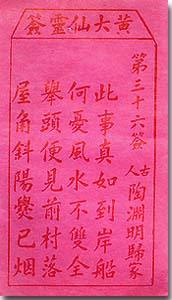 黃大仙靈簽
第三十六簽
古人 陶淵明歸家
此事真如到岸船
何憂風水不雙全
舉頭便見前村落
屋角斜陽爨已烟